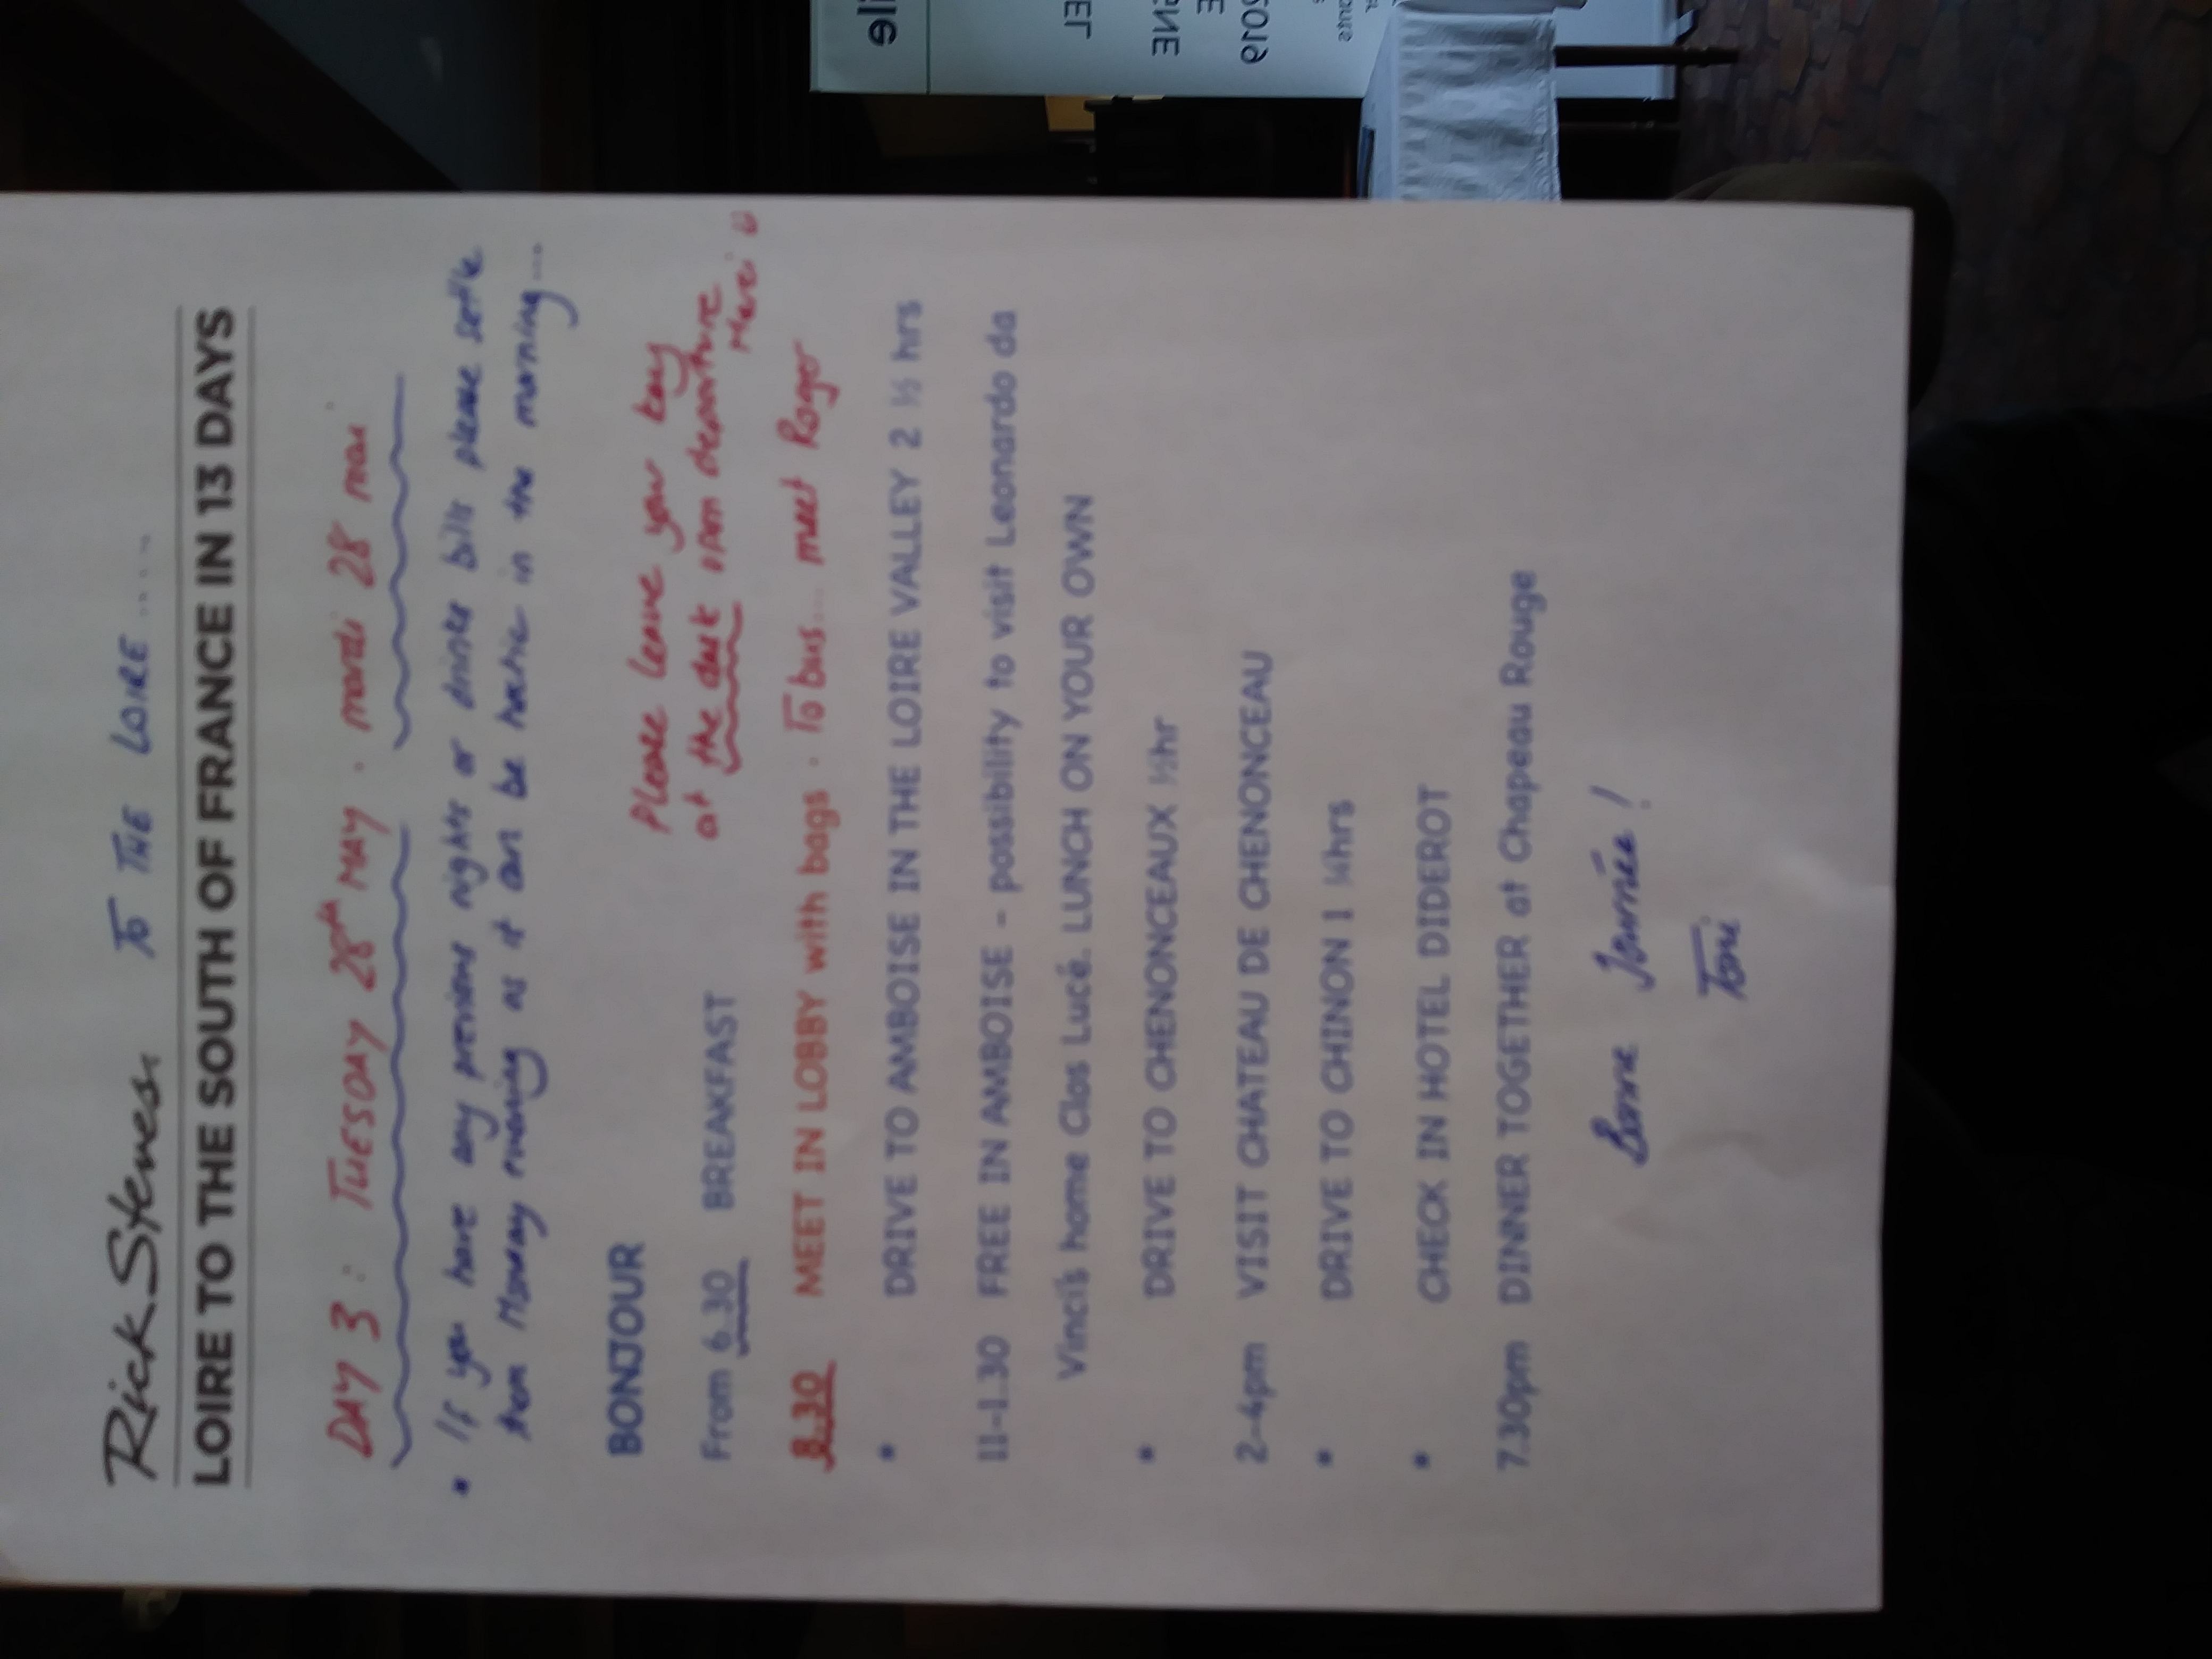 Rick Steves. TO THE LOIRE .....
LOIRE TO THE SOUTH OF FRANCE IN 13 DAYS
DAY 3 : TUESDAY 28th MAY . mardi 28 mai
• If you have any previous nights or drinks bills please settle
them Monday evening as it can be hectic in the morning...
BONJOUR
Please leave your key
From 6.30 BREAKFAST at the desk upon departure
Merci
8.30 MEET IN LOBBY with bags . To bus... meet Roger
• DRIVE TO AMBOISE IN THE LOIRE VALLEY 2 ½ hrs
11-1.30 FREE IN AMBOISE - possibility to visit Leonardo da
Vinci's home Clos Lucé. LUNCH ON YOUR OWN
• DRIVE TO CHENONCEAUX ½hr
2-4pm VISIT CHATEAU DE CHENONCEAU
• DRIVE TO CHINON 1 hrs
• CHECK IN HOTEL DIDEROT
7.30pm DINNER TOGETHER at Chapeau Rouge
Bonne Journée !
Toni